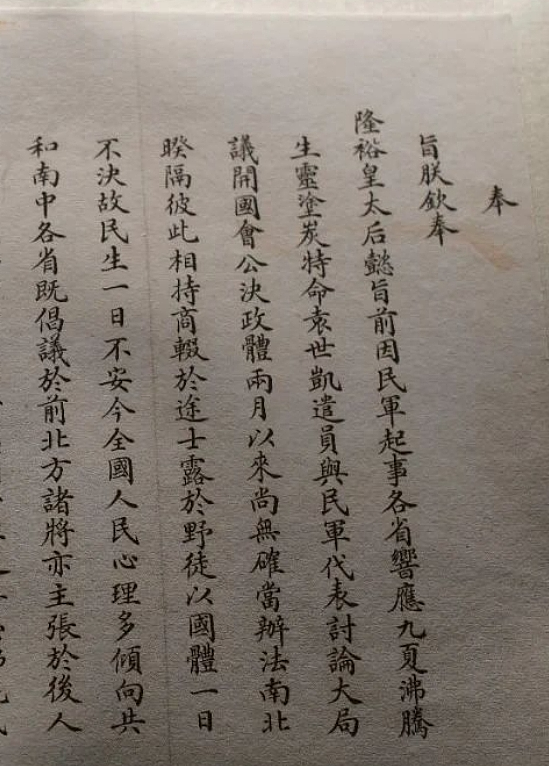 奉
旨朕欽奉
隆裕皇太后懿旨前因民軍起事各省響應九夏沸騰
生靈塗炭特命袁世凱遣員與民軍代表討論大局
議開國會公決政體兩月以來尚無確當辦法南北
暌隔彼此相持商輟於途士露於野徒以國體一日
不決故民生一日不安今全國人民心理多傾向共
和南中各省既倡議於前北方諸將亦主張於後人